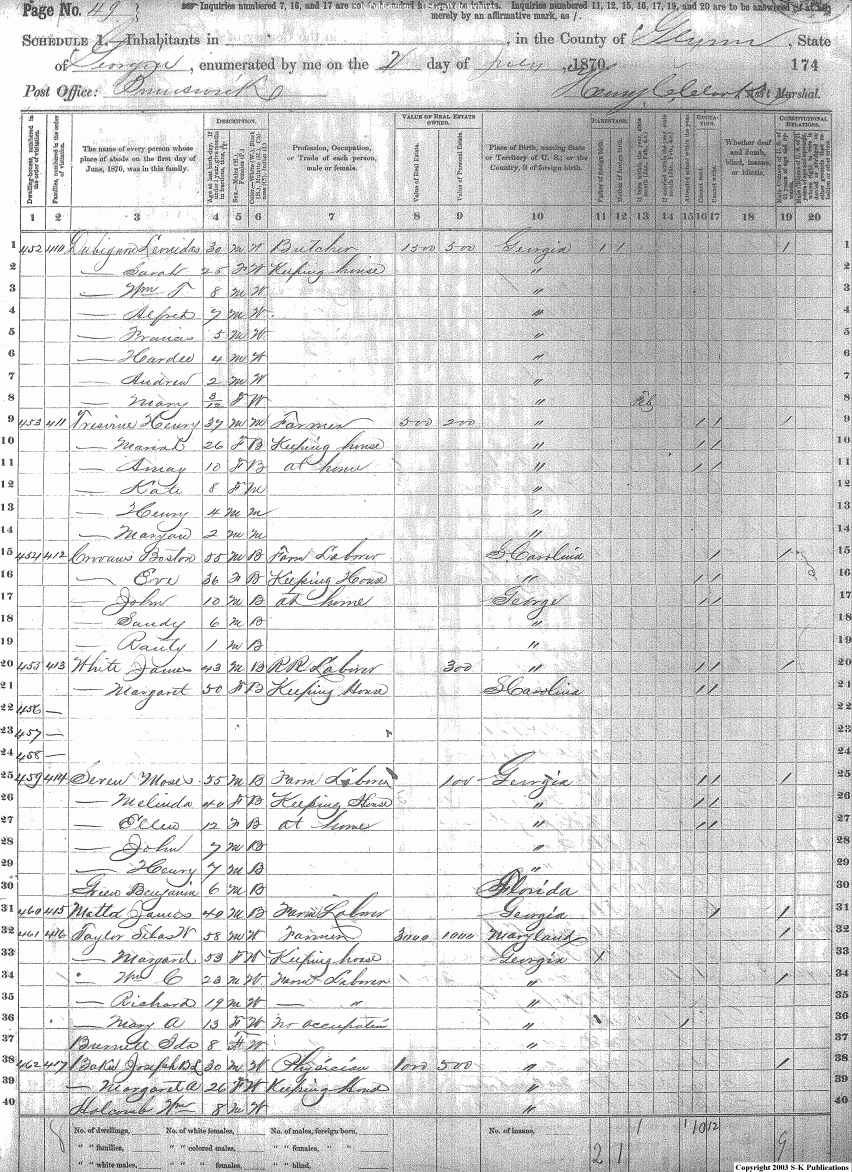 Page No. 49
Inquiries numbered 7, 16, and 17 are not to be asked in respect to infants. Inquiries numbered 11, 12, 15, 16, 17, 19, and 20 are to be answered (if at all)
merely by an affirmative mark, as /.
SCHEDULE 1. Inhabitants in , in the County of Glynn, State
of Georgia, enumerated by me on the 2 day of July, 1870. 174
Post Office: Brunswick Ass't Marshal.
DESCRIPTION. VALUE OF REAL ESTATE OWNED. PARENTAGE. EDUCATION. CONSTITUTIONAL RELATIONS.
Dwelling-houses, numbered in the order of visitation.
Families, numbered in the order of visitation.
The name of every person whose place of abode on the first day of June, 1870, was in this family.
Profession, Occupation, or Trade of each person, male or female.
Value of Real Estate.
Value of Personal Estate.
Place of Birth, naming State or Territory of U. S.; or the Country, if of foreign birth.
Father of foreign birth.
Mother of foreign birth.
Whether deaf and dumb, blind, insane, or idiotic.
1 2 3 4 5 6 7 8 9 10 11 12 13 14 15 16 17 18 19 20
1 452 410 Dubignon Leonidas 30 M W Butcher 1500 500 Georgia 1 1 1 1
2 — Sarah 25 F W Keeping house " 2
3 — Wm T 8 M W " 3
4 — Alfred 7 M W " 4
5 — Francis 5 M W " 5
6 — Hardee 4 M W " 6
7 — Andrew 2 M W " 7
8 — Mary 3/12 F W " Feb 8
9 453 411 Henry 37 M M Farmer 500 200 " 1 1 1 9
10 — Mariah 26 F B Keeping house " 1 1 10
11 — Amay 10 F B at home " 1 1 11
12 — Kate 8 F M " 12
13 — Henry 4 M M " 13
14 — 2 M M " 14
15 454 412 Boston 55 M B Farm Laborer S Carolina 1 1 15
16 — Eve 36 F B Keeping House " 1 1 16
17 — John 10 M B at home George 1 1 17
18 — Sandy 6 M B " 18
19 — 1 M B " 19
20 453 413 White James 43 M B RR Laborer 300 " 1 1 1 20
21 — Margaret 50 F B Keeping House S Carolina 1 1 21
22 456 — 22
23 457 — 23
24 458 — 24
25 459 414 Moses 55 M B Farm Laborer 100 Georgia 1 1 1 25
26 — Melinda 40 F B Keeping House " 1 1 26
27 — Ellen 12 F B at home " 1 1 27
28 — John 7 M B " 28
29 — Henry 7 M B " 29
30 Green Benjamin 6 M B Florida 30
31 460 415 James 40 M B Farm Laborer Georgia 1 1 31
32 461 416 Taylor Silas W 58 M W Farmer 3000 1000 Maryland 1 32
33 — Margaret 53 F W Keeping house Georgia 1 33
34 Wm C 23 M W Farm Laborer " 1 34
35 — Richard 19 M W — " " 35
36 — Mary A 13 F W No occupation " 1 36
37 Burnett Ida 8 F W " 37
38 462 417 Joseph B L 30 M W Physician 1000 500 " 1 38
39 — Margaret A 26 F W Keeping House " 39
40 Holcomb Wm 8 M W " 40
8 No. of dwellings, No. of white females, No. of males, foreign born, No. of insane, 2 1 1 1 10 12 9
" " families, " " colored males, " " females, " "
" " white males, " " females, " " blind,
Copyright 2003 S-K Publications